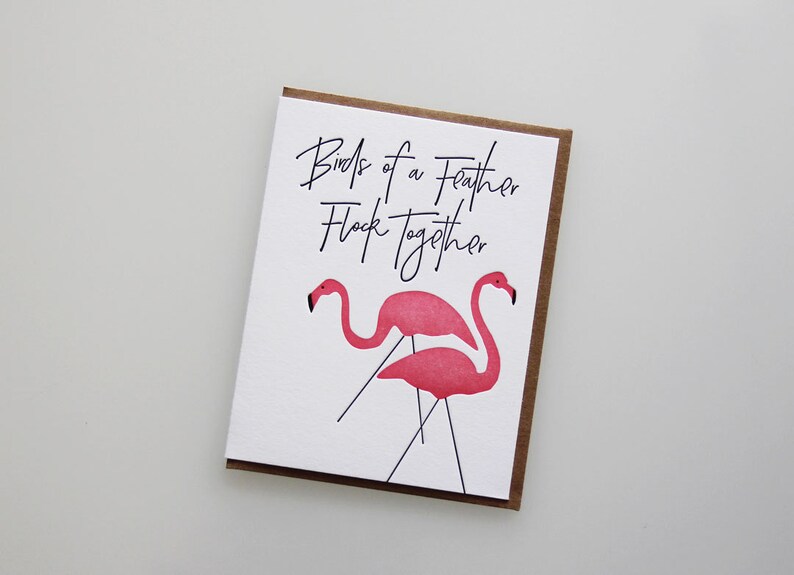 Birds of a Feather
Flock Together